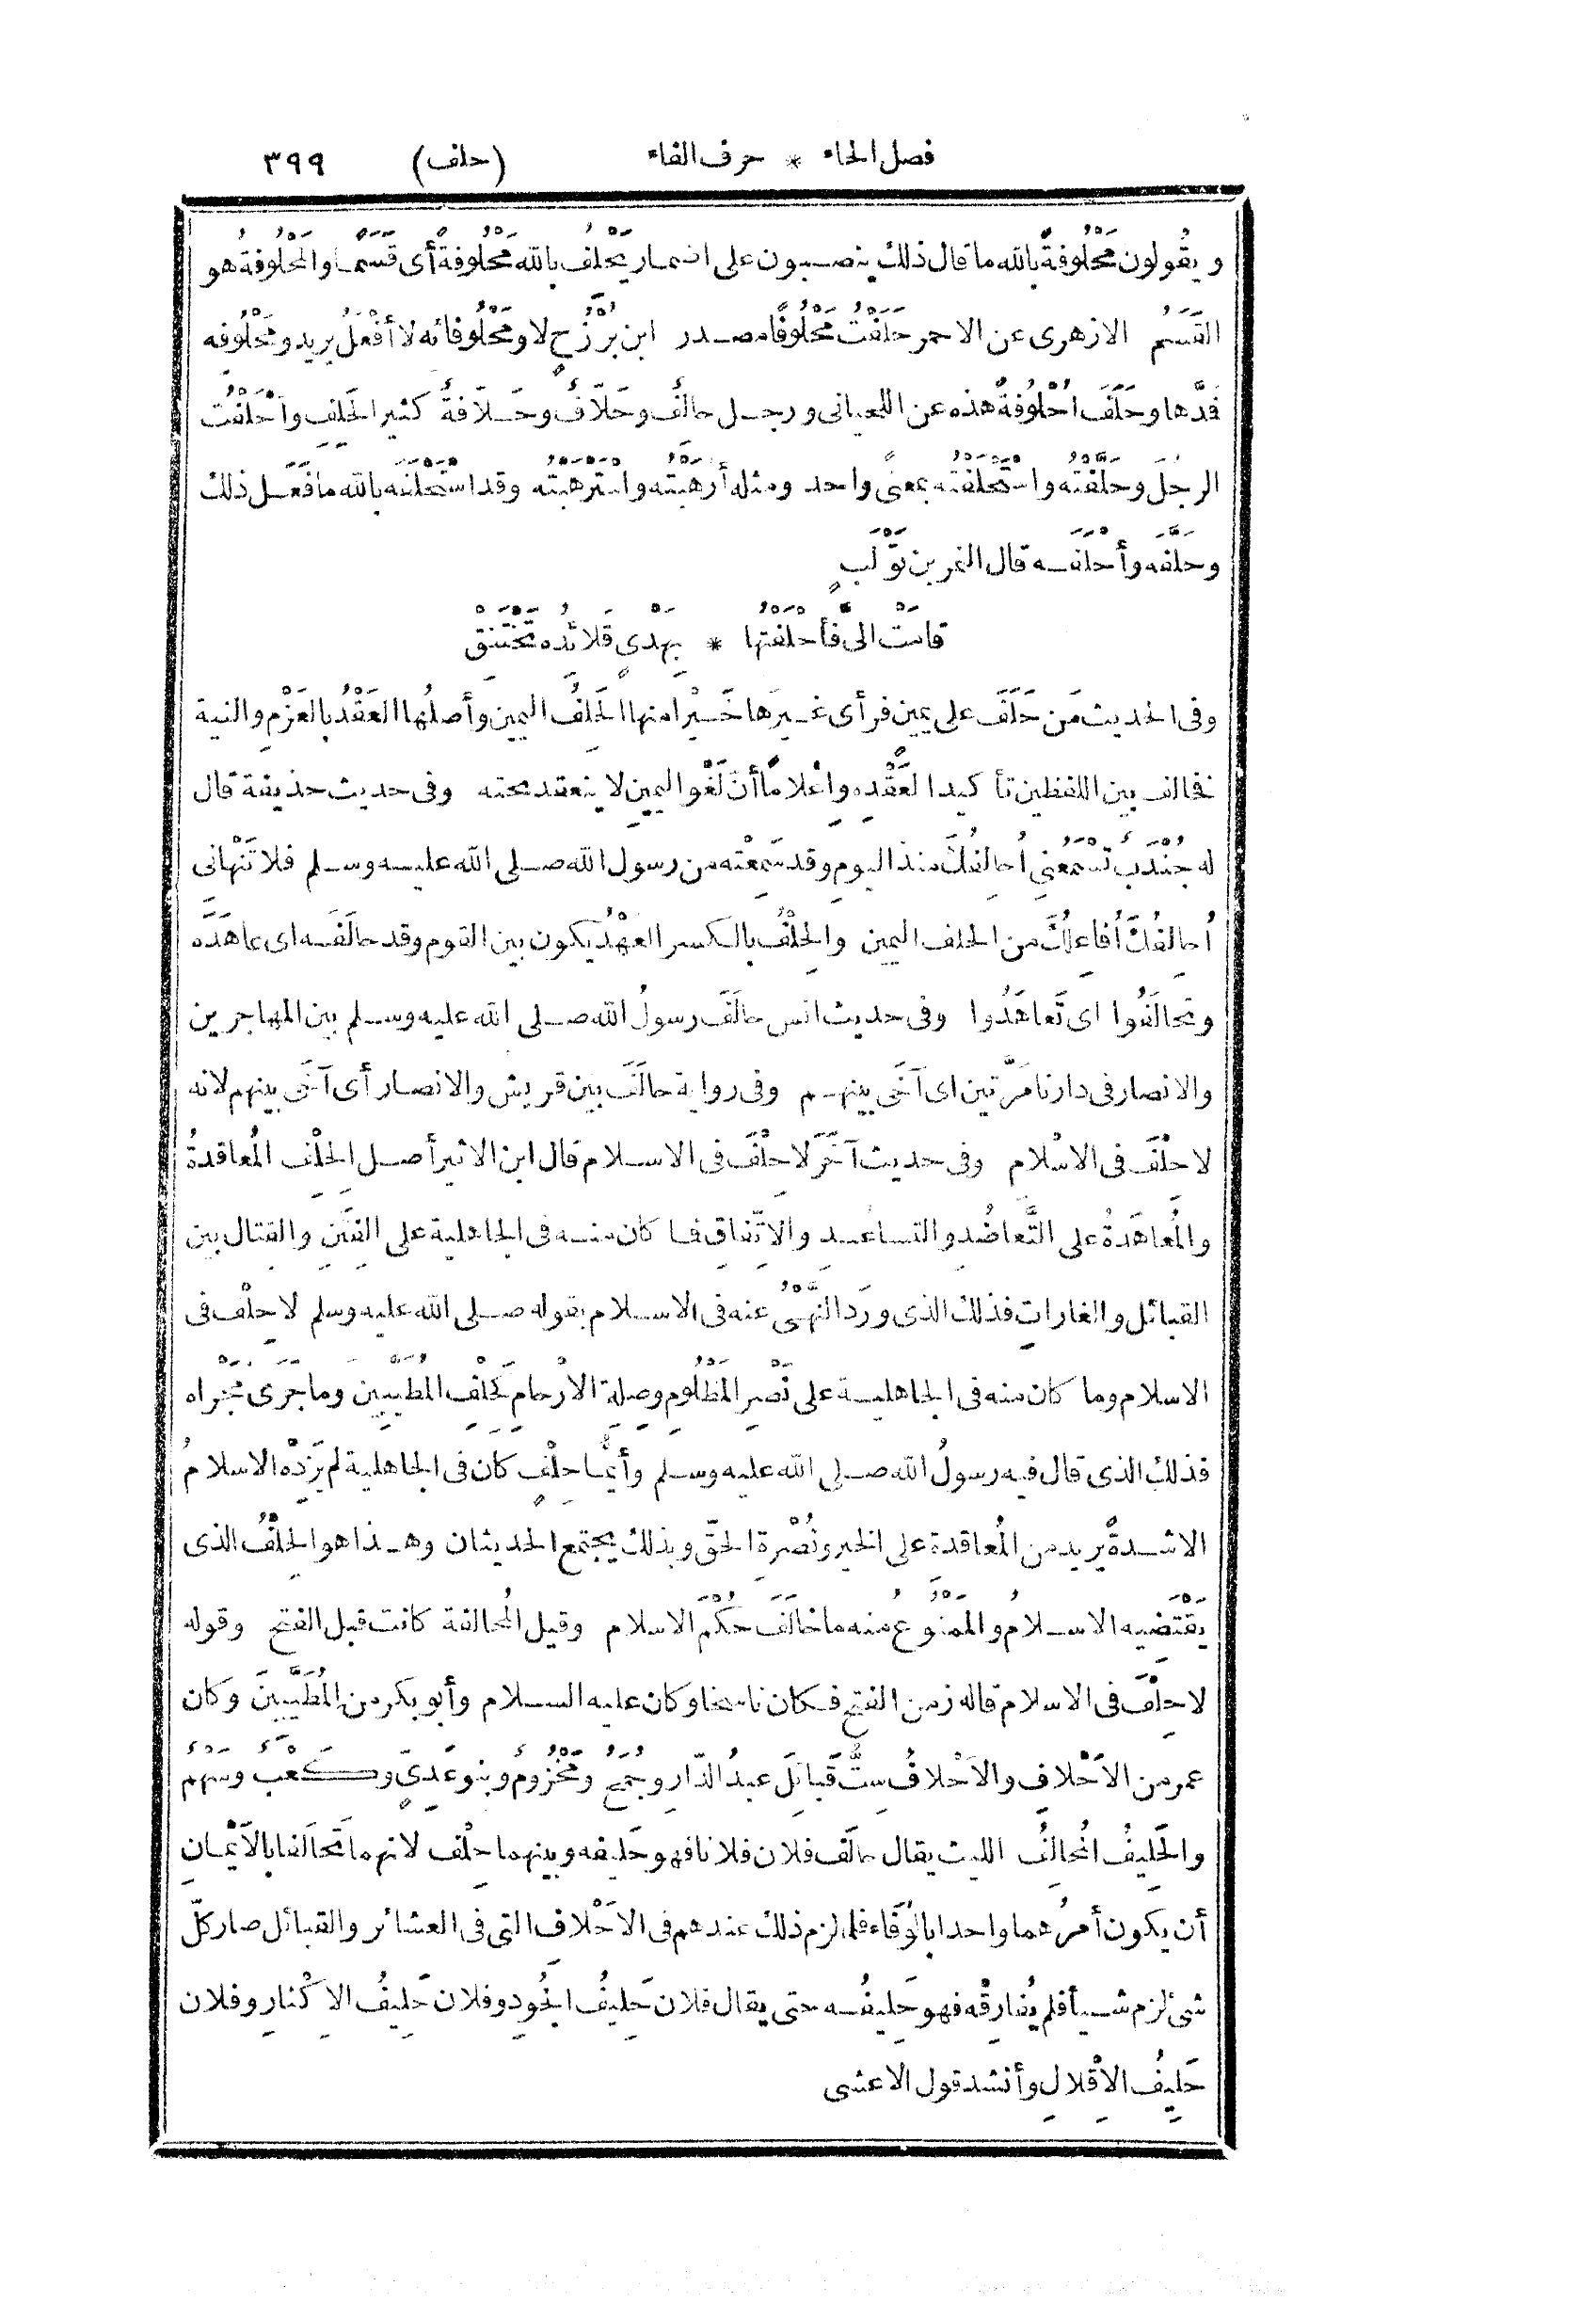 فصل الحاء * حرف الفاء (حلف) ٣٩٩
ويقُولون مَحْلُوفةً بالله ما قال ذلك ينصبون على اضمار يَحْلِفُ بالله مَحْلُوفةً أى قَسَمًا والمَحْلُوفةُ هو
القَسَمُ الازهرى عن الاحمر حَلَفْتُ مَحْلُوفًا مصدر ابن بُزُرْجٍ لا ومَحْلُوفائه لا أَفْعَلُ يريد ومَحْلُوفِه
فَدَّها وحَلَفَ أُحْلُوفةً هذه عن اللحيانى ورجل حالفٌ وحَلّافٌ وحَلّافةٌ كثير الحَلِفِ وأَحْلَفْتُ
الرجُلَ وحَلَّفْتُه واسْتَحْلَفْتُه بمعنًى واحد ومثله أَرْهَبْتُه واسْتَرْهَبْتُه وقد اسْتَحْلَفَه بالله ما فَعَل ذلك
وحَلَّفَه وأَحْلَفَه قال النمر بن تَوْلَبٍ
قامَتْ الىَّ فأَحْلَفْتُها * بِهَدْىٍ قَلائدُه تَخْتَنِقْ
وفى الحديث مَن حَلَفَ على يمين فرأى غيرَها خَيْرا منها الحَلِفُ اليمين وأصلُها العَقْدُ بالعَزْمِ والنية
فخالف بين اللفظين تأكيدا لعَقْدِه وإِعْلامًا أَنّ لَغْوَ اليمينِ لا ينعقد تحته وفى حديث حذيفة قال
له جُنْدَبٌ تَسْمَعُنى أُحالِفُكَ منذ اليوم وقد سَمِعْتَه من رسول الله صلى الله عليه وسلم فلا تَنْهانِى
أُحالِفُكَ أُفاعِلُكَ من الحلف اليمين والحِلْفُ بالكسر العَهْدُ يكون بين القوم وقد حالَفَه اى عاهَدَه
وتحالَفُوا اى تَعاهَدُوا وفى حديث انس حالَفَ رسولُ الله صلى الله عليه وسلم بين المهاجرين
والانصار فى دارنا مَرَّتين اى آخَى بينهم وفى رواية حالَفَ بين قريش والانصار أى آخَى بينهم لانه
لا حِلْفَ فى الاسْلام وفى حديث آخَرَ لا حِلْفَ فى الاسلام قال ابن الاثير أصل الحِلْفِ المُعاقدةُ
والمُعاهَدةُ على التَّعاضُدِ والتساعُدِ والاتِّفاقِ فما كان منه فى الجاهلية على الفِتَنِ والقتال بين
القبائل والغاراتِ فذلك الذى ورَد النَّهْىُ عنه فى الاسلام بقوله صلى الله عليه وسلم لا حِلْف فى
الاسلام وما كان منه فى الجاهلية على نَصْرِ المَظْلُومِ وصِلةِ الارْحامِ كحِلْفِ المُطَيَّبِينَ وما جَرَى مَجْراه
فذلك الذى قال فيه رسولُ الله صلى الله عليه وسلم وأَيُّما حِلْفٍ كان فى الجاهلية لم يَزِدْه الاسلامُ
الا شدةً يريد من المُعاقدة على الخير ونُصْرةِ الحَقّ وبذلك يجتمع الحديثان وهذا هو الحِلْفُ الذى
يَقْتَضِيه الاسلامُ والمَمْنُوعُ منه ما خالَفَ حُكْمَ الاسلام وقيل المُحالفة كانت قبل الفتح وقوله
لا حِلْفَ فى الاسلام قاله زمن الفتح فكان ناسخا وكان عليه السلام وأبو بكر من المُطَيَّبِينَ وكان
عمر من الاَحْلافِ والاَحْلافُ سِتُّ قَبائلَ عبدُ الدّارِ وجُمَحُ ومَخْزُومٌ وبنو عَدِىٍّ وكَعْبٌ وسَهْمٌ
والحَلِيفُ المُحالِفُ الليث يقال حالَف فلان فلانا فهو حَليفه وبينهما حِلْف لانهما تَحالَفا بالاَيْمانِ
أن يكون أمرُهما واحدا بالوَفاء فلما لزم ذلك عندهم فى الاَحْلافِ التى فى العشائر والقبائل صار كلّ
شئ لزم شيأ فلم يُفارِقْه فهو حَلِيفُه حتى يقال فلان حَلِيفُ الجُودِ وفلان حَلِيفُ الاِكْثارِ وفلان
حَلِيفُ الاِقْلالِ وأنشد قول الاعشى